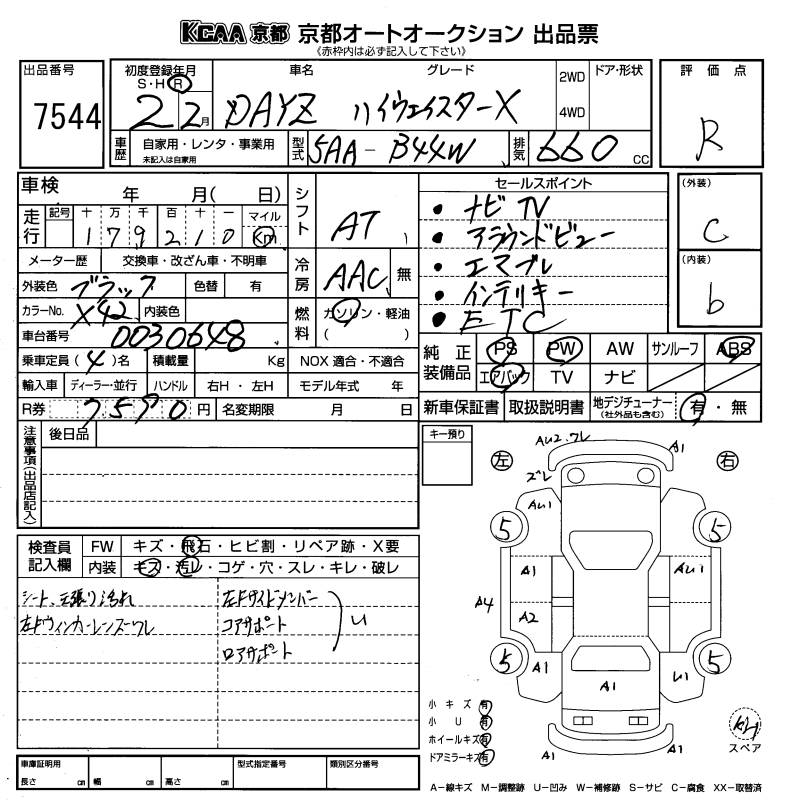 KCAA 京都 京都オートオークション 出品票
《赤枠内は必ず記入して下さい》
出品番号
7544
初度登録年月 車名 グレード
S・H・R
2 2月 DAYZ ハイウェイスターX
2WD
4WD
ドア・形状
評価点
R
車歴 自家用・レンタ・事業用
未記入は自家用
型式 5AA-B44W 排気 660 CC
車検 年 月( 日)
走行 記号 十 万 千 百 十 一 マイル
1 7 9 2 1 0 Km
メーター歴 交換車・改ざん車・不明車
外装色 ブラック 色替 有
カラーNo. X42 内装色
車台番号 0030648
乗車定員(4)名 積載量 Kg
輸入車 ディーラー・並行 ハンドル 右H・左H
R券 7590 円 名変期限 月 日
シフト AT
冷房 AAC 無
燃料 ガソリン・軽油
( )
NOX 適合・不適合
モデル年式 年
セールスポイント
・ナビTV
・アラウンドビュー
・エマブレ
・インテリキー
・ETC
(外装)
C
(内装)
b
純正装備品 PS PW AW サンルーフ ABS
エアバック TV ナビ
新車保証書 取扱説明書 地デジチューナー
(社外品も含む)
有・無
注意事項(出品店記入)
後日品
キー預り
検査員記入欄 FW キズ・飛石・ヒビ割・リペア跡・X要
内装 キズ・汚レ・コゲ・穴・スレ・キレ・破レ
シート、天張り汚れ
左Fウィンカーレンズワレ
左Fサイドメンバー
コアサポート
ロアサポート
U
左 右
AU2.ワレ A1
ズレ
AU1
5 5
A1 AU1
A4 A2
5 5
A1 U1
A1
A1 A1
小キズ 有
小U 有
ホイールキズ 有
ドアミラーキズ 有
スペア
車庫証明用
長さ cm 幅 cm 高さ cm
型式指定番号
類別区分番号
A-線キズ M-調整跡 U-凹み W-補修跡 S-サビ C-腐食 XX-取替済